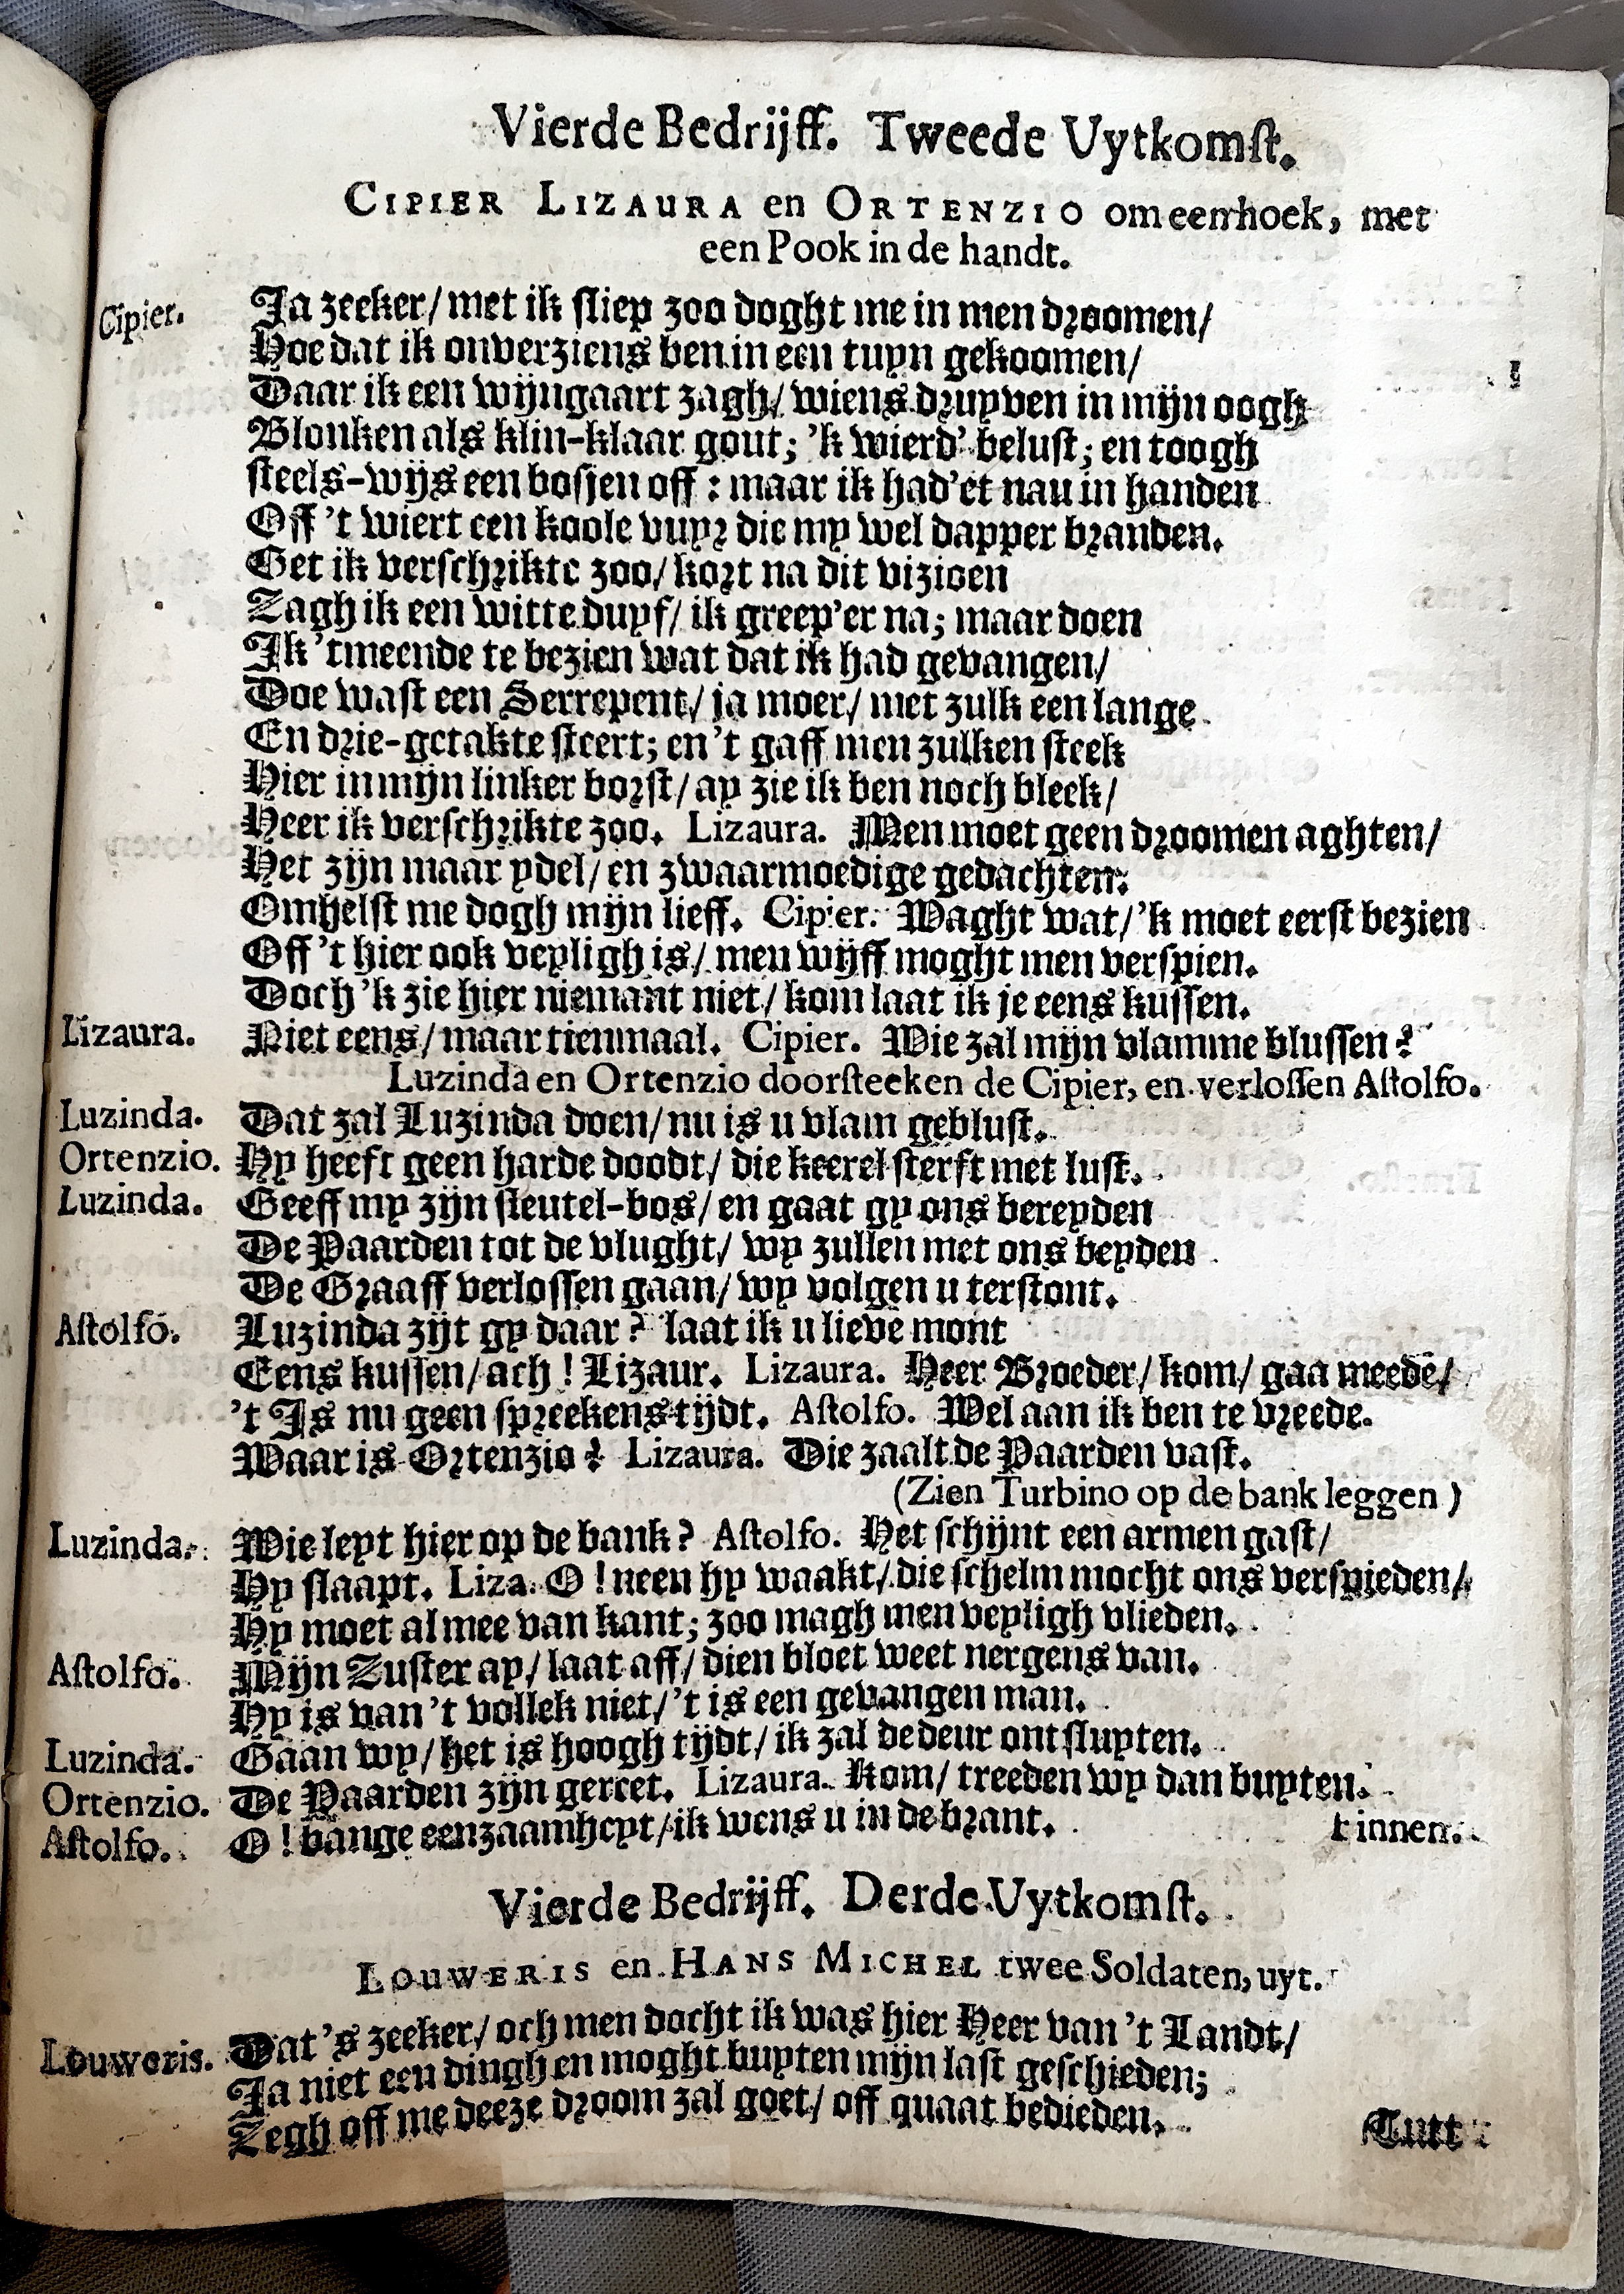 Vierde Bedrijff. Tweede Uytkomst.
CIPIER LIZAURA en ORTENZIO om een hoek, met
een Pook in de handt.
Cipier. Ja zeeker/ met ik sliep zoo doght me in men droomen/
Hoe dat ik onverziens ben in een tuyn gekoomen/
Daar ik een wijngaart zagh/ wiens druyven in mijn oogh
Blonken als klin-klaar gout; 'k wierd' belust; en toogh
steels-wijs een bosjen off : maar ik had'et nau in handen
Off 't wiert een koole vuyr die my wel dapper branden.
Get ik verschrikte zoo/ kort na dit vizioen
Zagh ik een witte duyf/ ik greep'er na; maar doen
Ik 't meende te bezien wat dat ik had gevangen/
Doe wast een Serrepent/ ja moer/ met zulk een lange
En drie-getakte steert; en 't gaff men zulken steek
Hier in mijn linker borst/ ay zie ik ben noch bleek/
Heer ik verschrikte zoo. Lizaura. Men moet geen droomen aghten/
Het zijn maar ydel/ en zwaarmoedige gedachten:
Omhelst me dogh mijn lieff. Cipier. Waght wat/ 'k moet eerst bezien
Off 't hier ook veyligh is/ men wijff moght men verspien.
Doch 'k zie hier niemant niet/ kom laat ik je eens kussen.
Lizaura. Niet eens/ maar tienmaal. Cipier. Wie zal mijn vlamme blussen?
Luzinda en Ortenzio doorsteeken de Cipier, en verlossen Astolfo.
Luzinda. Dat zal Luzinda doen/ nu is u vlam geblust.
Ortenzio. Hy heeft geen harde doodt/ die keerel sterft met lust.
Luzinda. Geeff my zijn sleutel-bos/ en gaat gy ons bereyden
De Paarden tot de vlught/ wy zullen met ons beyden
De Graaff verlossen gaan/ wy volgen u terstont.
Astolfo. Luzinda zijt gy daar? laat ik u lieve mont
Eens kussen/ ach! Lizaur. Lizaura. Heer Broeder/ kom/ gaa meede/
't Is nu geen spreekens tijdt. Astolfo. Wel aan ik ben te vreede.
Waar is Ortenzio? Lizaura. Die zaalt de Paarden vast.
(Zien Turbino op de bank leggen)
Luzinda. Wie leyt hier op de bank? Astolfo. Het schijnt een armen gast/
Hy slaapt. Liza. O! neen hy waakt/ die schelm mocht ons verspieden/
Hy moet al mee van kant; zoo magh men veyligh vlieden.
Astolfo. Mijn Zuster ay/ laat aff/ dien bloet weet nergens van.
Hy is van 't vollek niet/ 't is een gevangen man.
Luzinda. Gaan wy/ het is hoogh tijdt/ ik zal de deur ontsluyten.
Ortenzio. De Paarden zijn gereet. Lizaura. Kom/ treeden wy dan buyten.
Astolfo. O! bange eenzaamheyt/ ik wens u in de brant. binnen.
Vierde Bedrijff. Derde Uytkomst.
LOUWERIS en HANS MICHEL twee Soldaten, uyt.
Louweris. Dat 's zeeker/ och men docht ik was hier Heer van 't Landt/
Ja niet een dingh en moght buyten mijn last geschieden;
Zegh off me deeze droom zal goet/ off quaat bedieden.